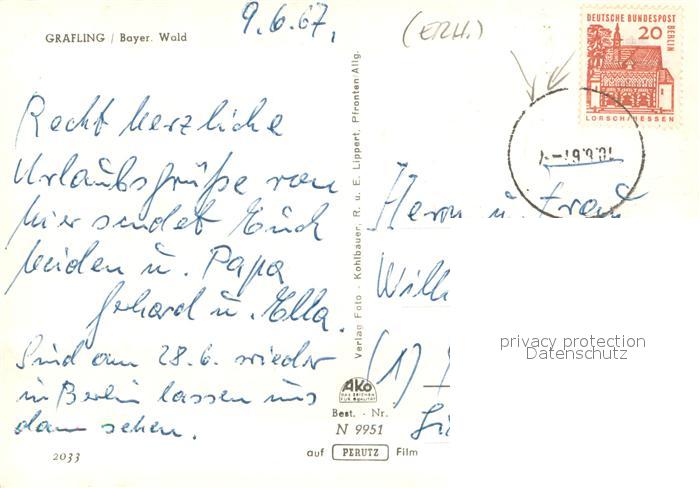 GRAFLING / Bayer. Wald
9.6.67,
(ERH.)
DEUTSCHE BUNDESPOST
BERLIN
20
LORSCH/HESSEN
Recht herzliche
Urlaubsgrüße von
hier sendet Euch
beiden u. Papa
Gerhard u. Ella.
Sind am 28.6. wieder
in Berlin lassen uns
dann sehen.
2033
Verlag Foto - Kohlbauer, R. u. E. Lippert, Pfronten Allg.
AKO
DAS ZEICHEN
FÜR QUALITÄT
Best. - Nr.
N 9951
auf PERUTZ Film
Herrn u. Frau
Wilh
(1)
privacy protection
Datenschutz